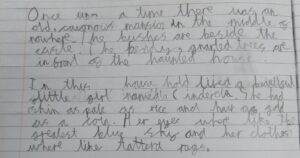 Once upon a time there was an
old, caugnous mansion in the middle of
nowhere. The bushes are beside the
castle. The bendy, gnarled trees are
infront of the haunted house.
In this house hold lived a
little girl named Cinderella. She had
skin as pale as rice and hair as gold
as a coin. Her eyes where like the
greatest blue sky and her clothes
where like tatterd rags.